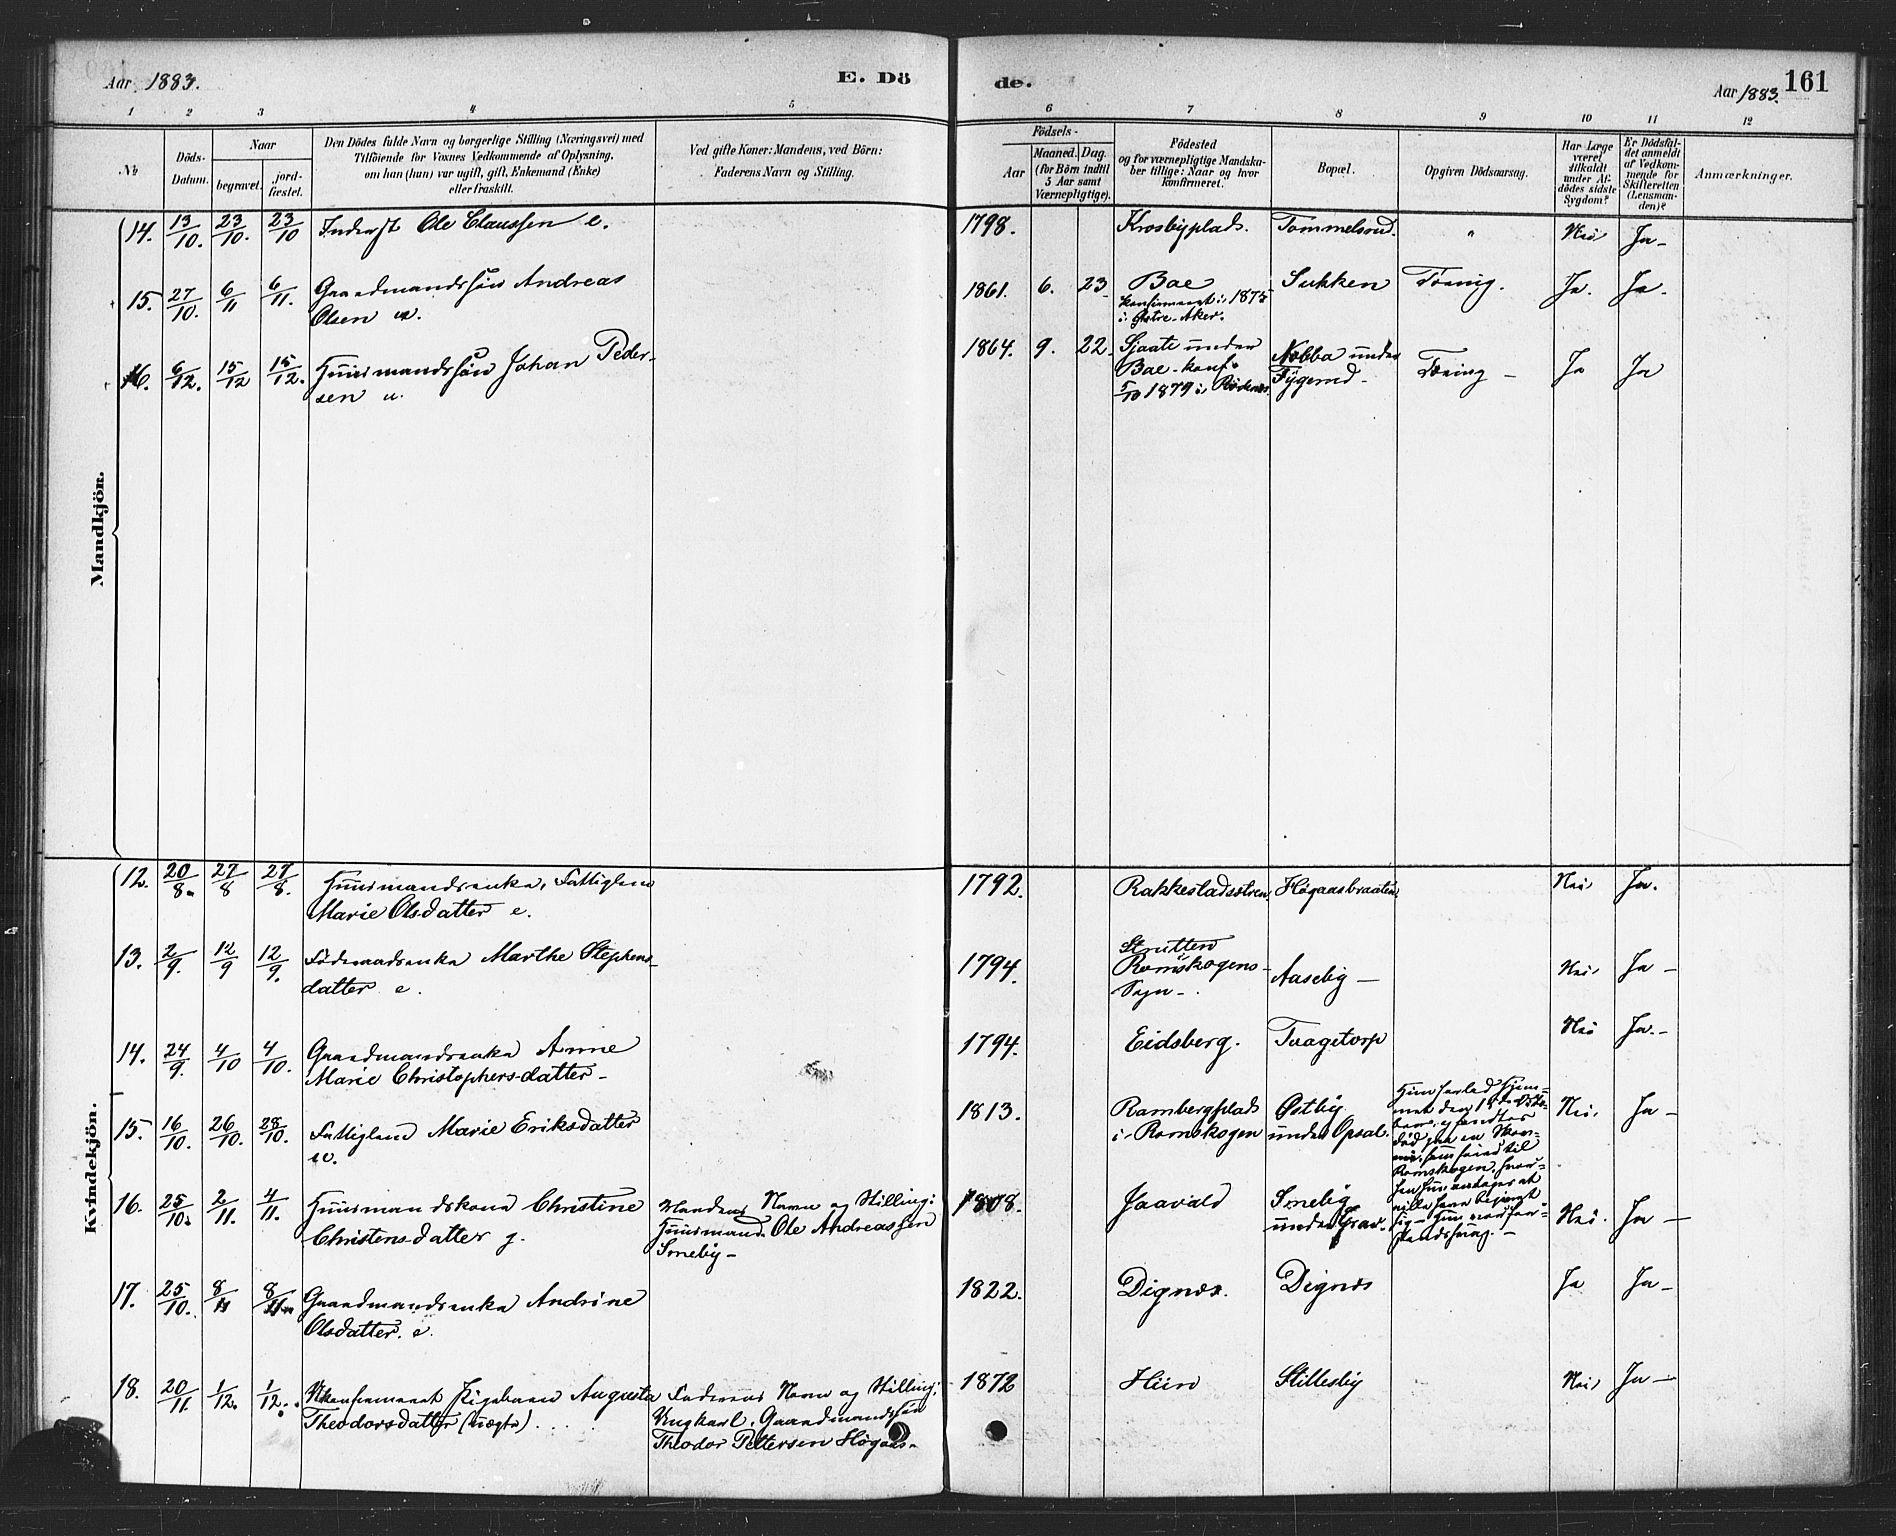 Aar 1883.
E. Dö
de.
Aar 1883.
161
1 2 3 4 5 6 7 8 9 10 11 12
No
Döds-
Datum.
Naar
begravet.
jord-
fæstet.
Den Dödes fulde Navn og borgerlige Stilling (Næringsvei) med
Tilföiende for Voxnes Vedkommende af Oplysning,
om han (hun) var ugift, gift, Enkemand (Enke)
eller fraskilt.
Ved gifte Koner: Mandens, ved Börn:
Faderens Navn og Stilling.
Födsels-
Aar
Maaned.
Dag.
(for Börn indtil
5 Aar samt
Værnepligtige).
Födested
og for værnepligtige Mandska-
ber tillige: Naar og hvor
konfirmeret.
Bopæl.
Opgiven Dödsaarsag.
Har Læge
været
tilkaldt
under Af-
dödes sidste
Sygdom?
Er Dödsfal-
det anmeldt
af Vedkom-
mende for
Skifteretten
(Lensman-
den)?
Anmærkninger.
Mandkjön.
14. 13/10. 23/10. 23/10 Inderst Ole Claussen e. 1798. Krosbyplads. Tommelsrud. " Nei Ja-
15. 27/10. 6/11 6/11. Gaardmandssøn Andreas
Olsen u. 1861. 6. 23 Bae
konfirmeret i 1875
i Østre-Aker. Sukken Tæring. Ja. Ja.
16. 6/12. 15/12 15/12. Huusmandssøn Johan Peder-
sen u. 1864. 9. 22. Sjaate under
Bae-konf.
5/10 1879 i Rødenæs. Nobba under
Tæring - Ja Ja
Kvindekjön.
12. 20/8. 27/8 27/8. Huusmandsenke, Fattiglem
Marie Olsdatter e. 1792. Rakkestadsstren. Høgaasbraaten. Nei Ja.
13. 2/9. 12/9 12/9. Føderaadsenke Marthe Stephens-
datter e. 1794. Strutten
Romskogens-
Sogn-. Aaseby - Nei. Ja -
14. 24/9. 4/10 4/10. Gaardmandsenke Anne
Marie Christophersdatter- 1794. Eidsberg. Tragetorp Nei Ja.-
15. 16/10. 26/10. 28/10. Fattiglem Marie Eriksdatter
u. 1813. Rambergplads
i Romskogen Østby
under Opsal. Nei. Ja -
Hun forlod Hjem-
met den
død paa en
Romskogen, hvor-
16. 25/10. 2/11. 4/11. Huusmandskone Christine
Christensdatter g. Mandens Navn og Stilling:
Huusmand Ole Andreassen
Smeby- 1808. Jaavald Smeby
under Grav. Nei. Ja -
17. 25/10. 8/11 8/11 Gaardmandsenke Andrine
Olsdatter. e. 1822. Dignæs. Dignæs Ja Ja-
18. 20/11. 1/12. 1/12. Ukonfirmeret Pigebarn Augusta
Theodorsdatter (uægte). Faderens Navn og Stilling:
Ungkarl, Gaardmandssøn
Theodor Pettersen Høgaas- 1872 Hiin Stillesby Nei Ja -